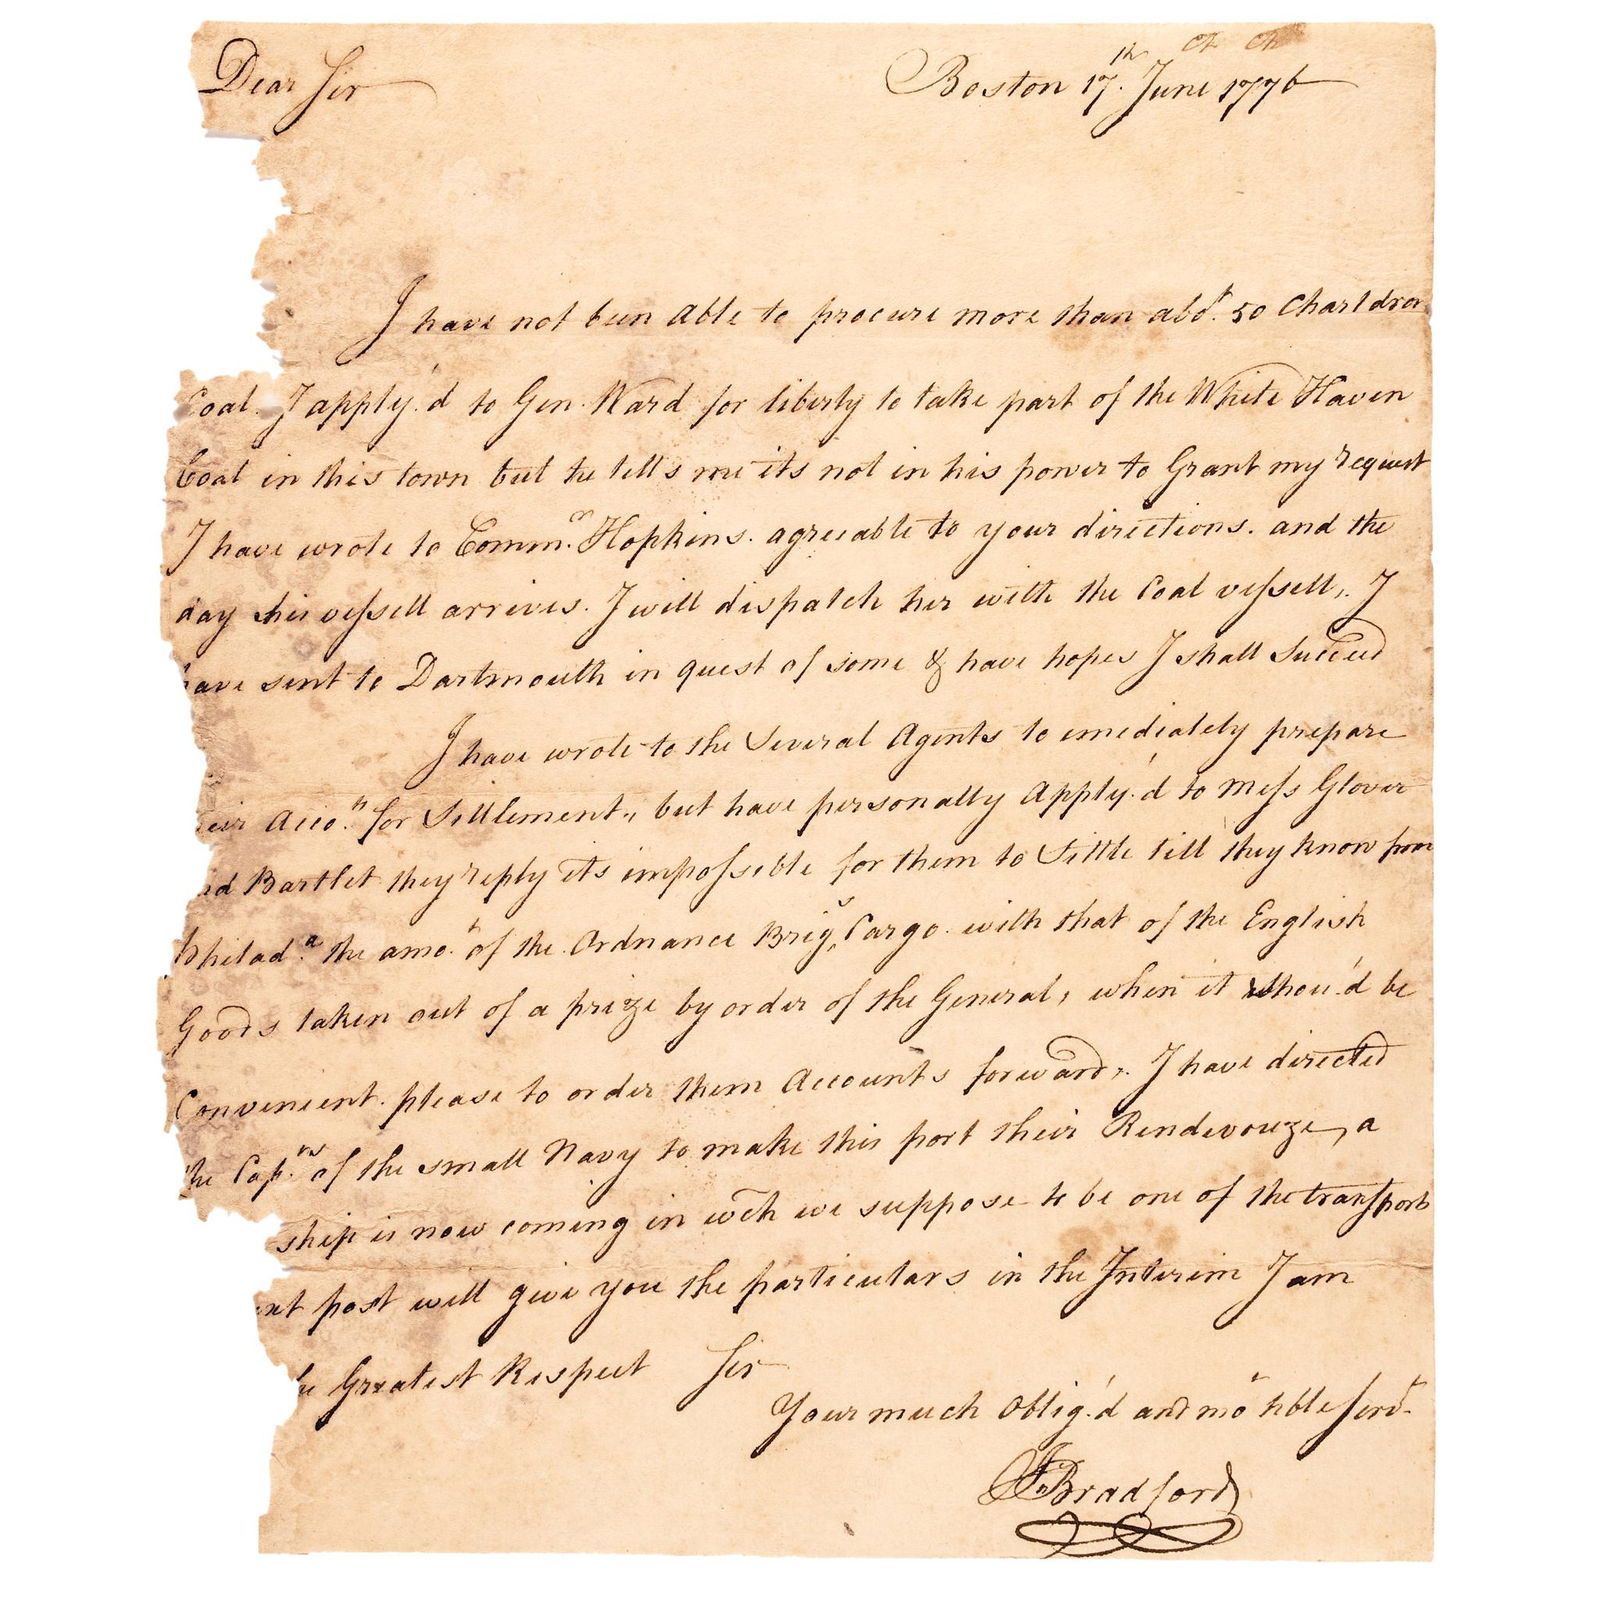 Dear Sir Boston 17th. June 1776
I have not been Able to procure more than abot. 50 Charldron
Coal. I apply'd to Gen. Ward for liberty to take part of the White Haven
Coal in this town but he tells me its not in his power to Grant my request
I have wrote to Comm.re Hopkins. agreeable to your directions. and the
day his vessell arrives. I will dispatch her with the Coal vessell,. I
have sent to Dartmouth in quest of some & have hopes I shall Succeed
I have wrote to the Several Agents to imediately prepare
eir Acco.ts for Settlement,, but have personally Apply'd to Mess Glover
nd Bartlet they reply its impossible for them to Settle till they know from
Philad.a the amo.t of the Ordnance Brigs Cargo. with that of the English
Goods taken out of a prize by order of the General, when it shou'd be
Convenient. please to order them Accounts forward,. I have directed
the Cap.ns of the small Navy to make this port their Rendevouze, a
ship is now coming in wch we suppose to be one of the transports
ext post will give you the particulars in the Interim I am
he Greatest Respect Sir
Your much Oblig'd and mot hble servt
J Bradford